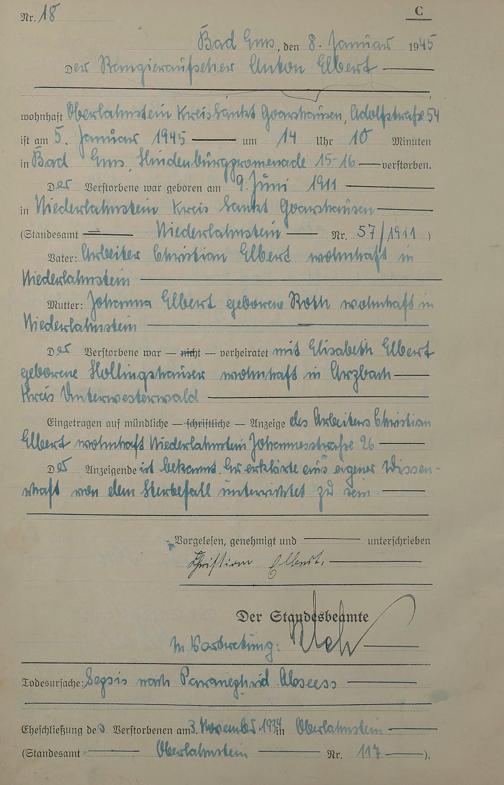 Nr. 18
C
Bad Ems, den 8. Januar 1945
Der Rangieraufseher Anton Elbert
wohnhaft Oberlahnstein Kreis Sankt Goarshausen, Adolfstraße 54
ist am 5. Januar 1945 um 14 Uhr 10 Minuten
in Bad Ems, Hindenburgpromenade 15-16 verstorben.
Der Verstorbene war geboren am 9. Juni 1911
in Niederlahnstein Kreis Sankt Goarshausen
(Standesamt Niederlahnstein Nr. 57/1911)
Vater: Arbeiter Christian Elbert wohnhaft in
Niederlahnstein
Mutter: Johanna Elbert geborene Roth wohnhaft in
Niederlahnstein
Der Verstorbene war — nicht — verheiratet mit Elisabeth Elbert
geborene Hollingshauser wohnhaft in Arzbach
Kreis Unterwesterwald
Eingetragen auf mündliche — schriftliche — Anzeige des Arbeiters Christian
Elbert wohnhaft Niederlahnstein Johannesstraße 26
Der Anzeigende ist bekannt. Er erklärte aus eigener Wissen-
schaft von dem Sterbefall unterrichtet zu sein
Vorgelesen, genehmigt und unterschrieben
Christian Elbert.
Der Standesbeamte
In Vertretung:
Todesursache: Sepsis nach Abscess
Eheschließung des Verstorbenen am 3. November 1934 in Oberlahnstein
(Standesamt Oberlahnstein Nr. 117).